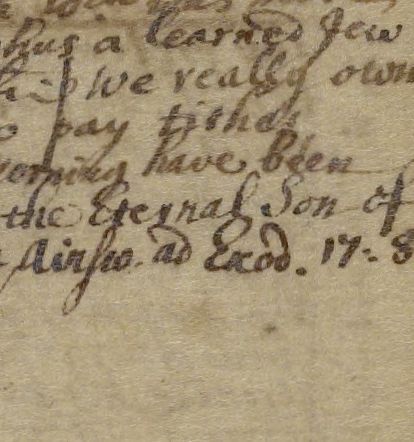 a learned Jew
we really own
pay tithes
have been
the Eternal Son of
Ainsw. ad Exod. 17. 8